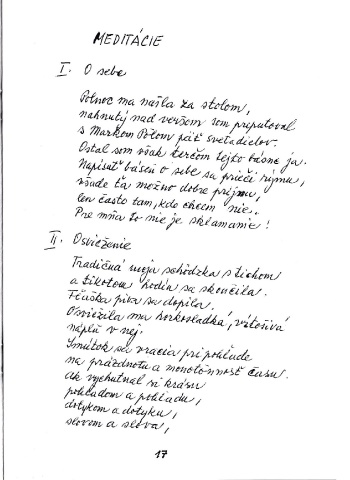 MEDITÁCIE
I. O sebe
Polnoc ma našla za stolom,
nahnutý nad veršom som priputoval
s Markom Polom päť svetadielov.
Ostal som však terčom tejto básne ja.
Napísať báseň o sebe sa prieči rýmu,
všade ťa možno dobre prijmu,
len často tam, kde chcem nie..
Pre mňa to nie je sklamanie!
II. Osvieženie
Tradičná moja schôdzka s tichom
a tikotom hodín sa skončila.
Fľaška piva sa dopila.
Osviežila ma horkosladká, vzťoživá
náplň v nej.
Smútok sa vracia pri pohľade
na prázdnotu a monotónnosť času.
ak vychutnal si krásu
pohľadom a pohľadu,
dotykom a dotyku,
slovom a slova,
17